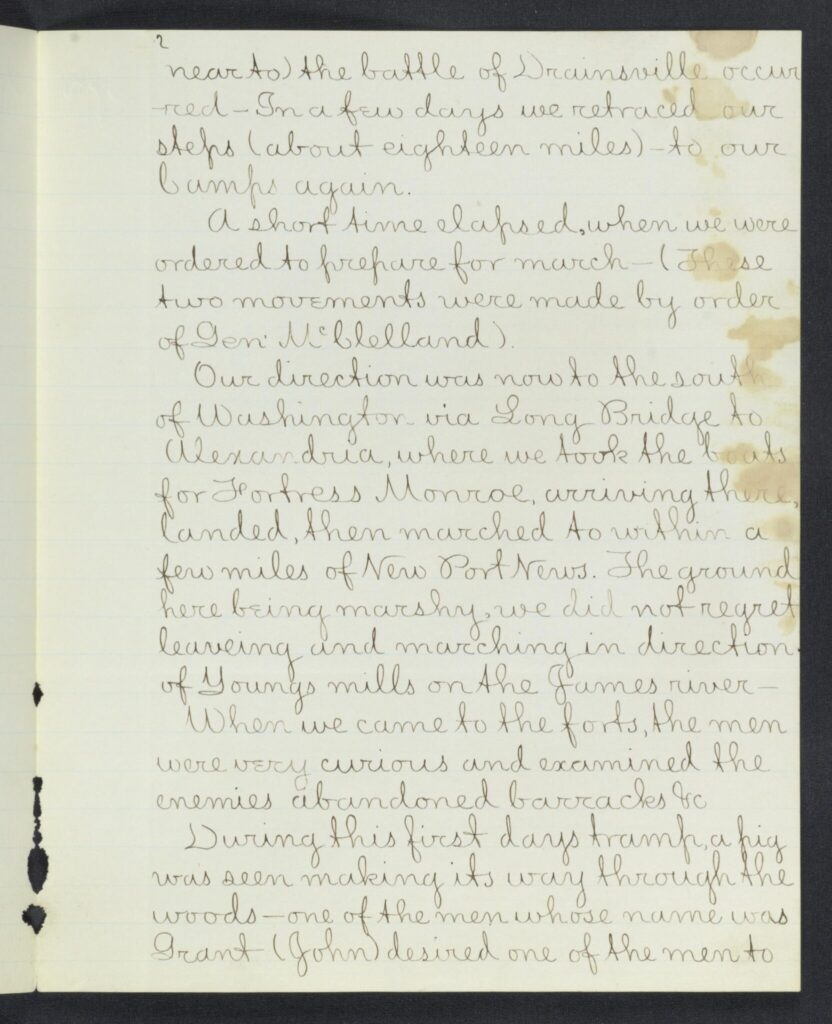 2
near to) the battle of Drainsville occur
-red - In a few days we retraced our
steps (about eighteen miles) - to our
Camps again.
A short time elapsed, when we were
ordered to prepare for march - (These
two movements were made by order
of Gen. McClelland).
Our direction was now to the south
of Washington via Long Bridge to
Alexandria, where we took the boats
for Fortress Monroe, arriving there,
landed, then marched to within a
few miles of New Port News. The ground
here being marshy, we did not regret
leaveing and marching in direction
of Youngs mills on the James river -
When we came to the forts, the men
were very curious and examined the
enemies abandoned barracks &c
During this first days tramp, a pig
was seen making its way through the
woods - one of the men whose name was
Grant (John) desired one of the men to